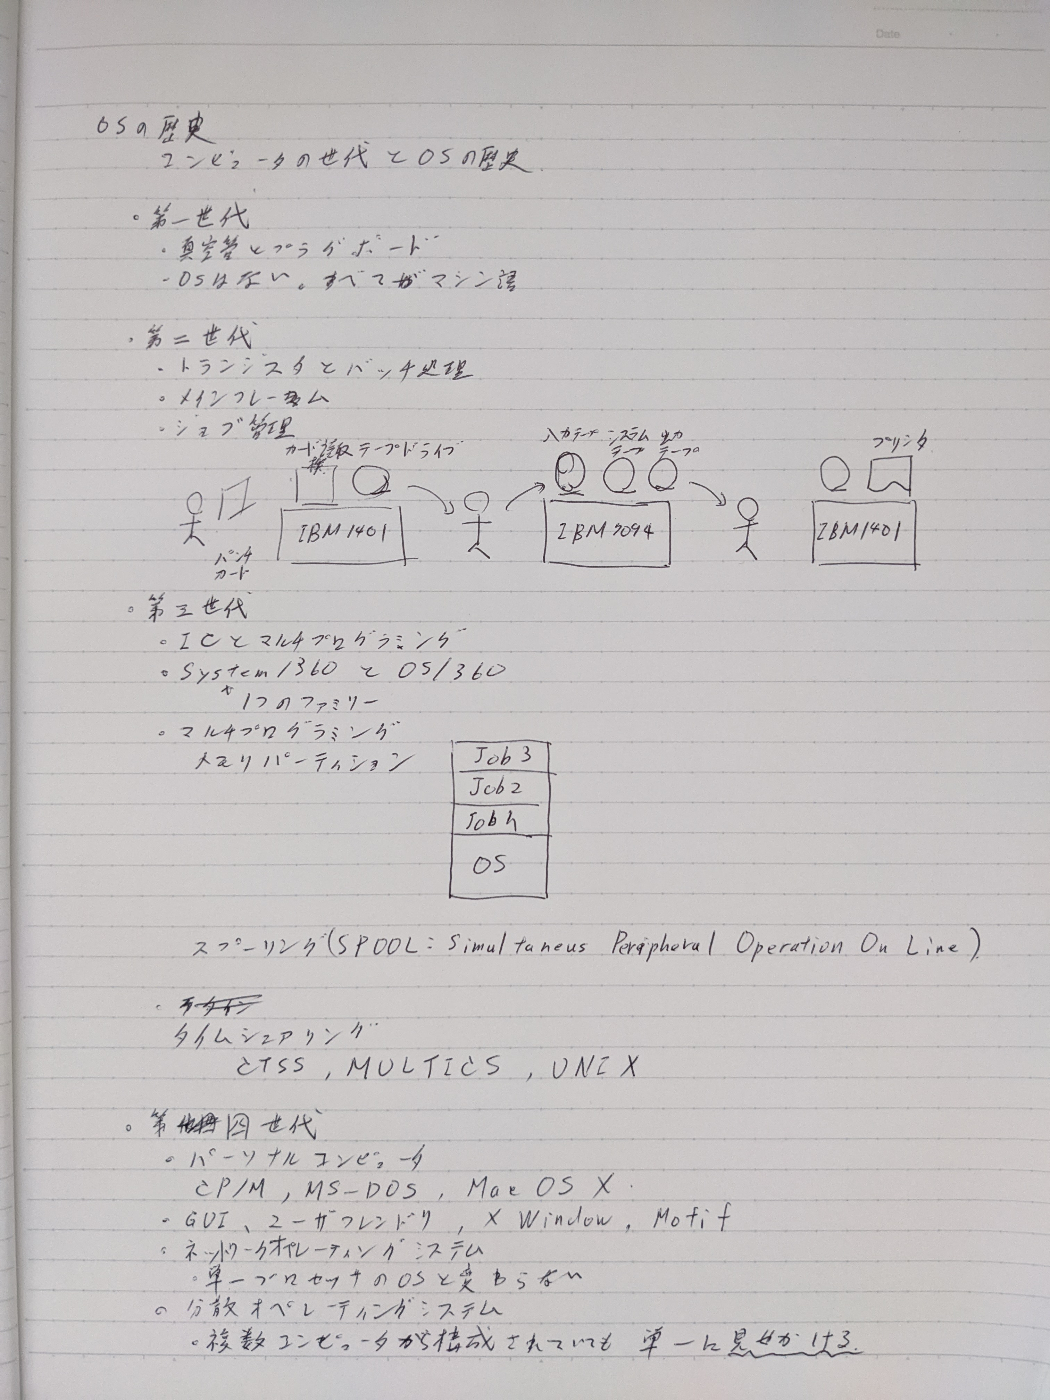 Date
OSの歴史
コンピュータの世代とOSの歴史
・第一世代
・真空管とプラグボード
・OSはない。すべてがマシン語
・第二世代
・トランジスタとバッチ処理
・メインフレーム
・ジョブ管理
カード読取機 テープドライブ
入力テープ システムテープ 出力テープ
プリンタ
IBM1401
IBM7094
IBM1401
パンチカード
・第三世代
・ICとマルチプログラミング
・System/360 と OS/360
1つのファミリー
・マルチプログラミング
メモリパーティション
Job3
Job2
Job1
OS
スプーリング(SPOOL: Simultaneus Peripheral Operation On Line)
・
タイムシェアリング
CTSS, MULTICS, UNIX
・第四世代
・パーソナルコンピュータ
CP/M, MS-DOS, Mac OS X.
・GUI、ユーザフレンドリ, X Window, Motif
・ネットワークオペレーティングシステム
・単一プロセッサのOSと変わらない
・分散オペレーティングシステム
・複数コンピュータから構成されていても 単一に見せかける.